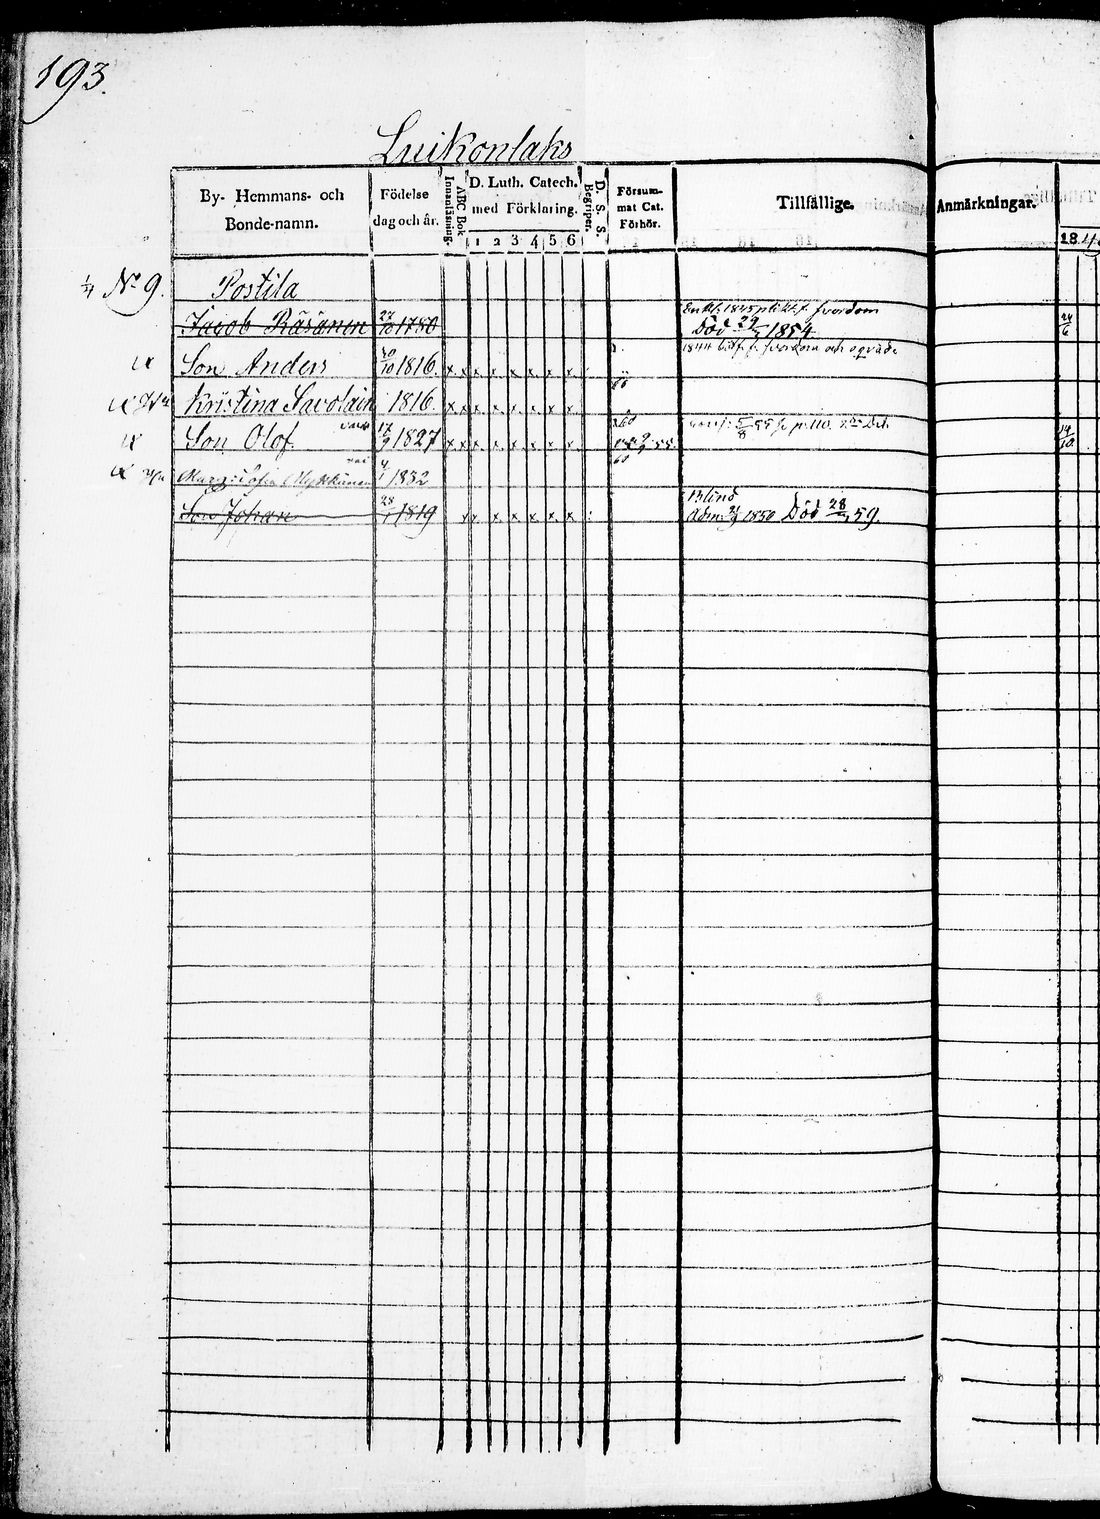 193.
Luikonlaks
By- Hemmans- och Bonde-namn.
Födelse dag och år.
ABC Bok Innanläsning.
D. Luth. Catech. med Förklaring.
1 2 3 4 5 6
D. S. S. Begriper.
Försummat Cat. Förhör.
Tillfällige. Anmärkningar.
184
1/4 No 9. Postila
Jacob Räsänen 27/10 1780 1845 f. hordom
Död 29 1854 24/6
Son Anders 20/10 1816. x x x x x x x x 1844 f. hordom och
Kristina Savolain 1816. x x x x x x x x 60
Son Olof 17/9 1827 x x x x x x x x 60 5/8 14/10
Sofia Mykkänen 4/1 1832 60
Son Johan 28/1 1819 x x x x x x x x Blind
Adm. 21/9 1850 Död 28 59.